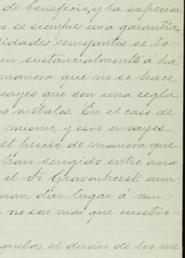 de beneficio, y la experien
o es siempre una garantia,
lidades semejantes se ho
en sustancialmente á ha
manera que no se hace
sayes que son una regla
os metales. En el caso de
mismo, y esos ensayes
el precio de manera que
han surgido entre ana
el Sr Gravenhorst, aun
dar lugar á mu
no son mas que cuestio
el decir de los me